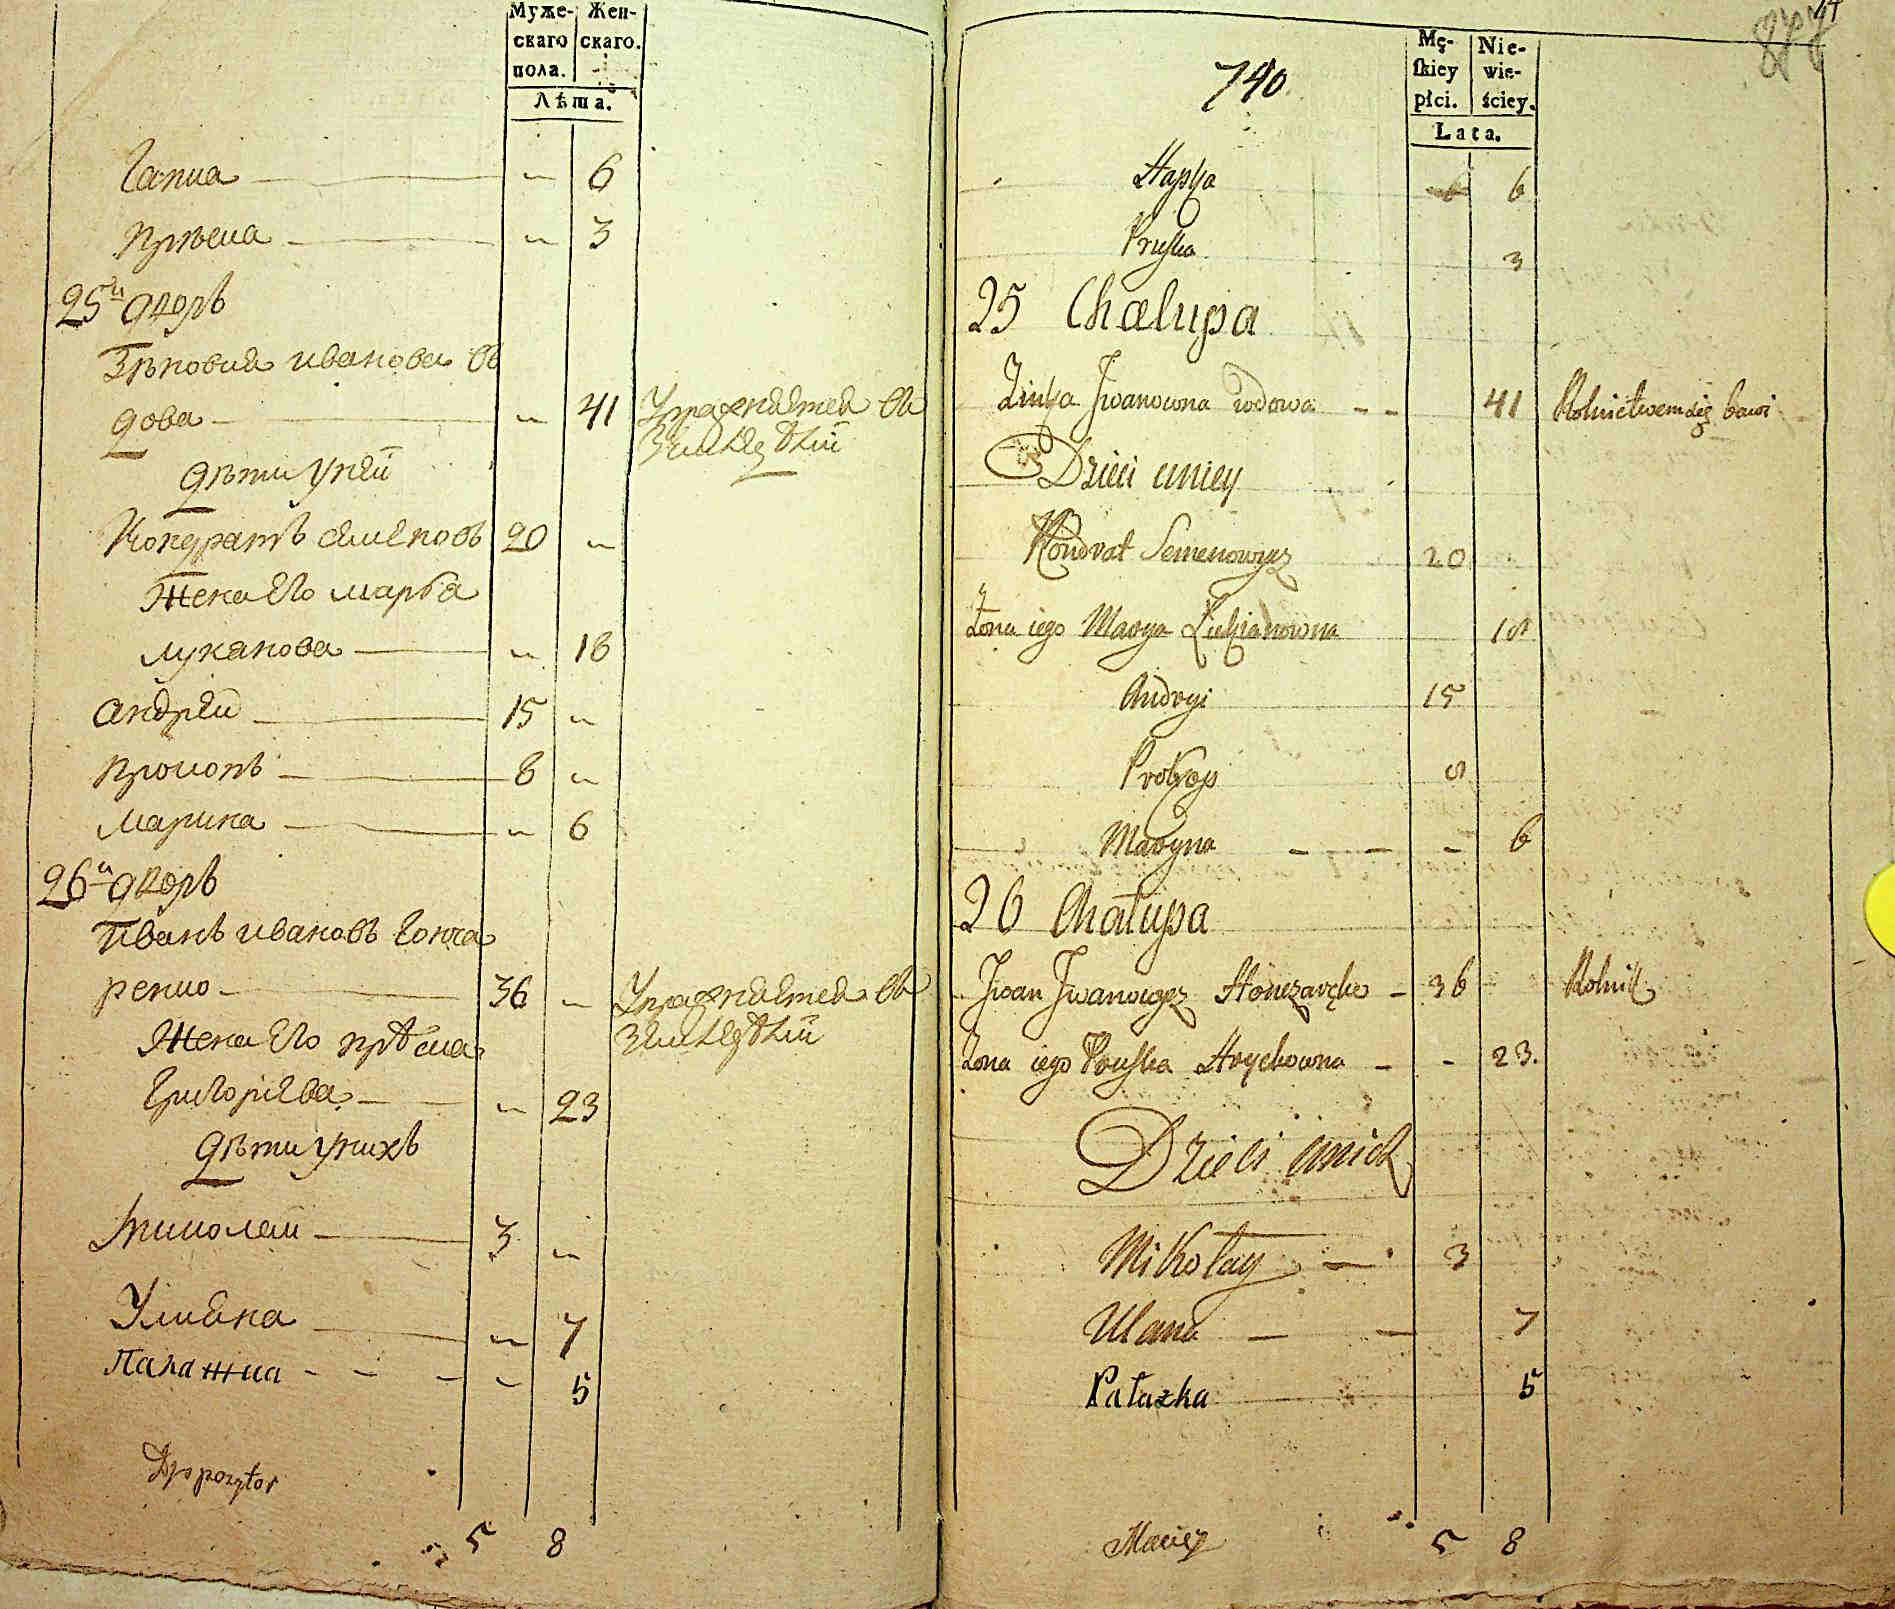 Муже-
скаго
пола.
Жен-
скаго.
Лѣта.
Гапка 6
Прѣска 3
25й дворъ
Зѣновия иванова в
дова 41 Упражняется въ
земледѣлии
дѣти у ней
Кондратъ семеновъ 20
Жена его марья
лукянова 18
андрей 15
прокопъ 8
марина 6
26й дворъ
иванъ ивановъ гонча
ренко 36 Упражняется въ
земледѣлии
Жена его прѣска
григориева 23
дѣти у нихъ
николай 3
Улияна 7
Палажка 5
Dyspozytor
5 8
877
740
Mę-
skiey
płci.
Nie-
wie-
ściey.
Lata.
Hapka 6
Pruska 3
25 Chalupa
Zinka Jwanowna wdowa 41 Rolnictwem się bawi
Dzieci u niey
Kondrat Semenowycz 20
Żona iego Marya Łukianowna 18
Andryi 15
Prokop 8
Maryna 6
26 Chałupa
Jwan Jwanowycz Honczarenko 36 Rolnik
Żona iego Pruska Hrychowna 23.
Dzieci u nich
Mikołay 3
Ulana 7
Pałazka 5
Maciey
5 8